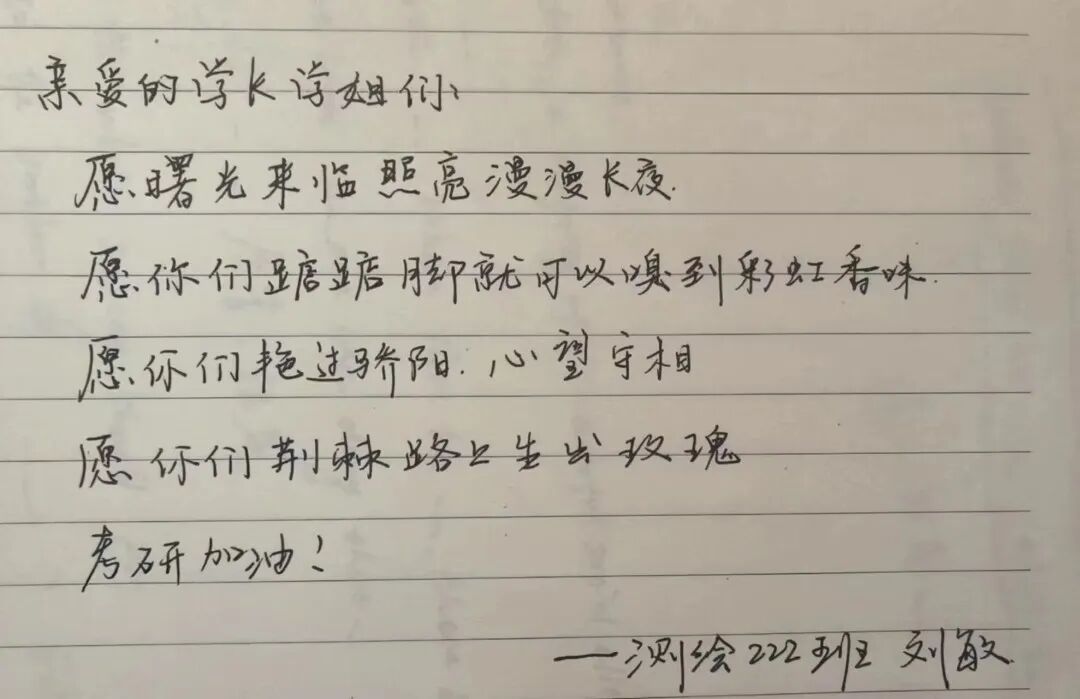 亲爱的学长学姐们：
愿曙光来临照亮漫漫长夜.
愿你们踮踮脚就可以嗅到彩虹香味.
愿你们艳过骄阳.心望守相
愿你们荆棘路上生出玫瑰
考研加油！
——测绘222班 刘敏.